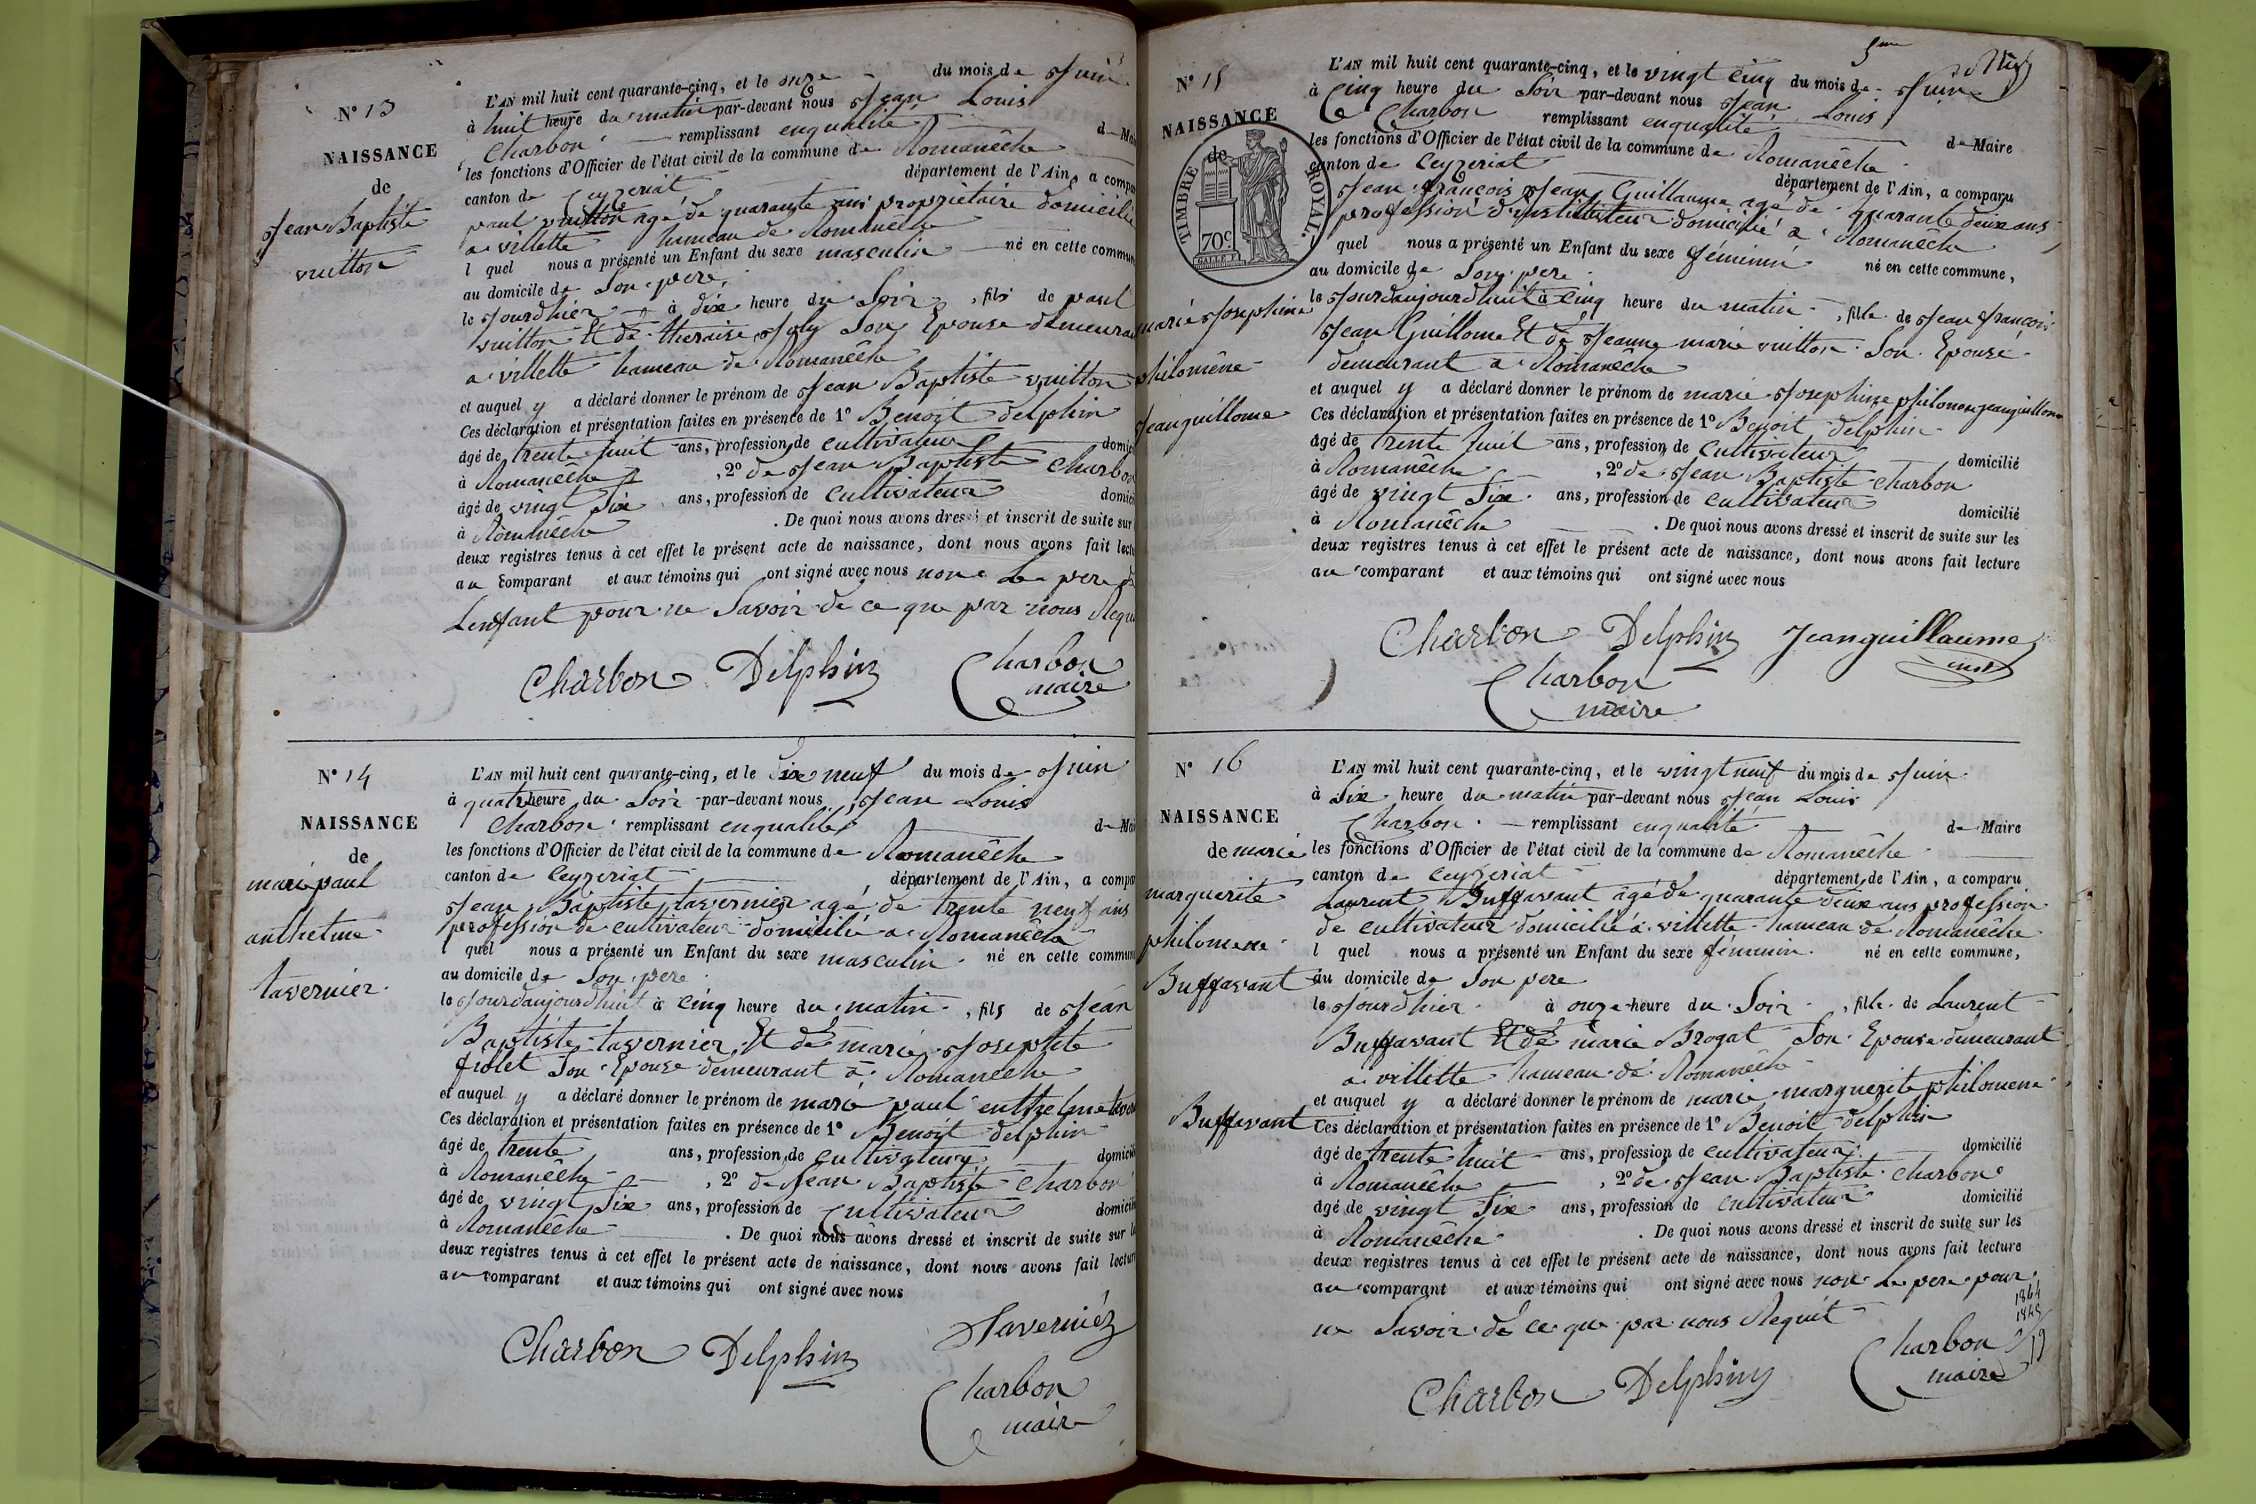 N° 13
NAISSANCE
de
Jean Baptiste
vuitton
L'AN mil huit cent quarante-cinq, et le onze du mois de Juin
à huit heure du matin par-devant nous Jean Louis
Charbon remplissant enqualité de Mai
les fonctions d'Officier de l'état civil de la commune de Romanêche
canton de Ceyzeriat département de l'Ain, a compa
paul vuitton agé de quarante ans propriétaire domicilié
a villette hameau de Romanêche
l quel nous a présenté un Enfant du sexe masculin né en cette commun
au domicile de Son pere
le Jourdhier à dix heure du Soir, fils de paul
vuitton Et de theraise Joly Son Epouse demeurant
a villette hameau de Romanêche
et auquel y a déclaré donner le prénom de Jean Baptiste vuitton
Ces déclaration et présentation faites en présence de 1° Benoit delphin
âgé de trente huit ans, profession de cultivateur domici
à Romanêche, 2° de Jean Baptiste Charbon
âgé de vingt Six ans, profession de cultivateur domici
à Romanêche. De quoi nous avons dressé et inscrit de suite sur
deux registres tenus à cet effet le présent acte de naissance, dont nous avons fait lectu
au comparant et aux témoins qui ont signé avec nous non Le pere de
Lenfant pour ne Savoir de ce que par nous Requi
Charbon Delphin Charbon
maire
N° 14
NAISSANCE
de
marie paul
anthelme
tavernier
L'AN mil huit cent quarante-cinq, et le Dix neuf du mois de Juin
à quatre heure du Soir par-devant nous Jean Louis
Charbon remplissant enqualité de Mai
les fonctions d'Officier de l'état civil de la commune de Romanêche
canton de Ceyzeriat département de l'Ain, a compa
Jean Baptiste tavernier agé de trente neuf ans
profession de cultivateur domicilié a Romanêche
l quel nous a présenté un Enfant du sexe masculin né en cette commune
au domicile de Son pere
le Jourdaujourdhuit à Cinq heure du matin, fils de Jean
Baptiste tavernier Et de marie Josephte
fiolet Son Epouse demeurant a Romanêche
et auquel y a déclaré donner le prénom de marie paul enthelme
Ces déclaration et présentation faites en présence de 1° Benoit delphin
âgé de trente ans, profession de cultivateur domicili
à Romanêche, 2° de Jean Baptiste Charbon
âgé de vingt Six ans, profession de Cultivateur domicili
à Romanêche. De quoi nous avons dressé et inscrit de suite sur le
deux registres tenus à cet effet le présent acte de naissance, dont nous avons fait lectur
au comparant et aux témoins qui ont signé avec nous
Charbon Delphin Tavernier
Charbon
maire
5me
N° 15
NAISSANCE
de
TIMBRE ROYAL
70c
marie Josephine
philomêne
Jeanguillome
L'AN mil huit cent quarante-cinq, et le vingt cinq du mois de Juin
à Cinq heure du Soir par-devant nous Jean Louis
Charbon remplissant enqualité de Maire
les fonctions d'Officier de l'état civil de la commune de Romanêche
canton de Ceyzeriat département de l'Ain, a comparu
Jean françois Jean Guillaume agé de quarante deux ans
profession d'instituteur domicilié a Romanêche
quel nous a présenté un Enfant du sexe féminin né en cette commune,
au domicile de Son pere
le Jourdaujourdhuit à Cinq heure du matin, fille de Jean françois
Jean Guillome Et de Jeanne marie vuitton Son Epouse
demeurant a Romanêche
et auquel y a déclaré donner le prénom de marie Josephine philomene jeanguillome
Ces déclaration et présentation faites en présence de 1° Benoit delphin
âgé de trente huit ans, profession de Cultivateur domicilié
à Romanêche, 2° de Jean Baptiste Charbon
âgé de vingt Six ans, profession de Cultivateur domicilié
à Romanêche. De quoi nous avons dressé et inscrit de suite sur les
deux registres tenus à cet effet le présent acte de naissance, dont nous avons fait lecture
au comparant et aux témoins qui ont signé avec nous
Charbon Delphin Jeanguillaume
inst
Charbon
maire
N° 16
NAISSANCE
de marie
marguerite
philomene
Buffavant
Buffavant
L'AN mil huit cent quarante-cinq, et le vingt neuf du mois de Juin
à Six heure du matin par-devant nous Jean Louis
Charbon remplissant enqualité de Maire
les fonctions d'Officier de l'état civil de la commune de Romanêche
canton de Ceyzeriat département de l'Ain, a comparu
Laurent Buffavant âgé de quarante deux ans profession
de cultivateur domicilié a villette hameau de Romanêche
l quel nous a présenté un Enfant du sexe féminin né en cette commune,
au domicile de Son pere
le Jourdhier à onze heure du Soir, fille de Laurent
Buffavant Et de marie Brogat Son Epouse demeurant
a villette hameau de Romanêche
et auquel y a déclaré donner le prénom de marie marguerite philomene
Ces déclaration et présentation faites en présence de 1° Benoit delphin
âgé de trente huit ans, profession de cultivateur domicilié
à Romanêche, 2° de Jean Baptiste Charbon
âgé de vingt Six ans, profession de Cultivateur domicilié
à Romanêche. De quoi nous avons dressé et inscrit de suite sur les
deux registres tenus à cet effet le présent acte de naissance, dont nous avons fait lecture
au comparant et aux témoins qui ont signé avec nous non Le pere pour
ne Savoir de ce que par nous Requit
1864
1845
19
Charbon Delphin Charbon
maire